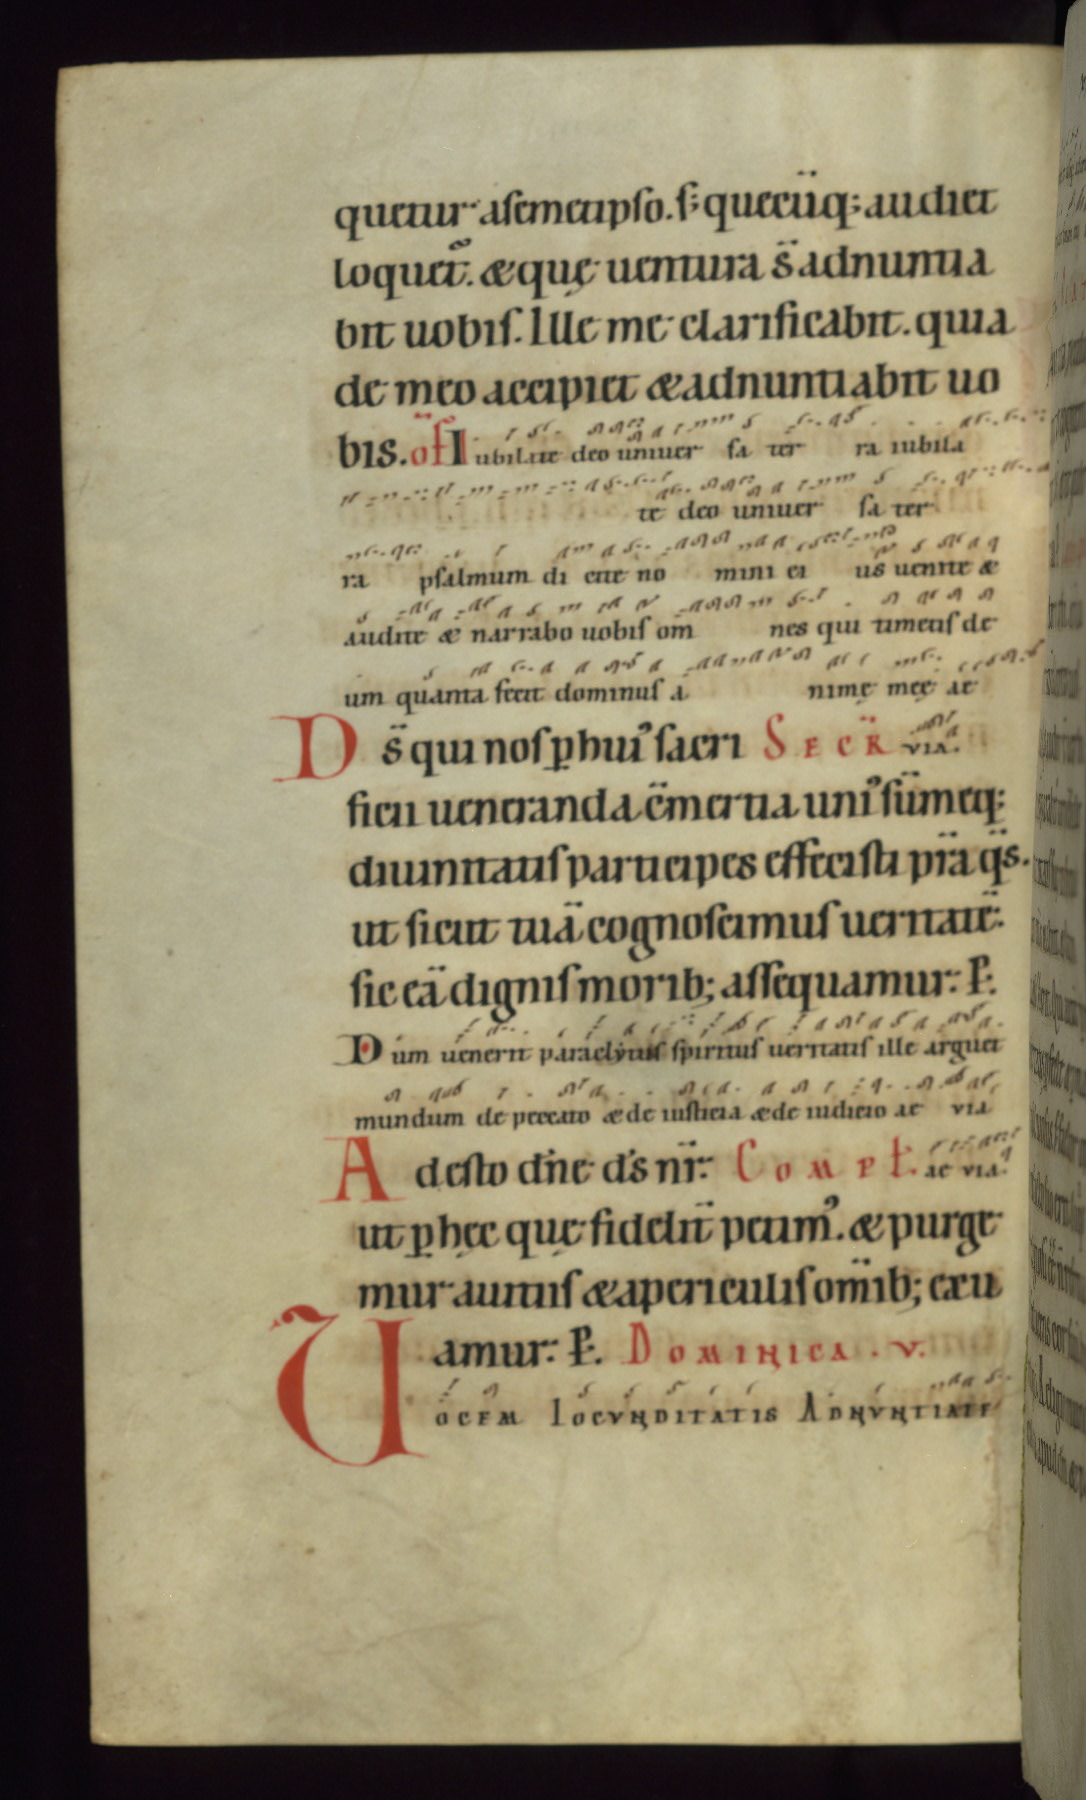 quetur asemetipso. s; quecūq; audiet
loquet̄. & quę uentura s̄ adnuntia
bit uobis. Ille me clarificabit. quia
de meo accipiet & adnuntiabit uo
bis. of̄ Iubilate deo uniuer sa ter ra iubila
te deo uniuer sa ter
ra psalmum di cite no mini ei us uenite &
audite & narrabo uobis om̄ nes qui timetis de
um quanta fecit dominus a nimę meę ae
Ds̄ qui nos p hui᾽ sacri Secr̄ via.
ficii ueneranda c̄mertia uni᾽ sūmeq;
diuinitatis participes effecisti p̄ra q̄s.
ut sicut tuā cognoscimus ueritatē.
sic eā dignis morib; assequamur. P.
Dum uenerit paraclytus spiritus ueritatis ille arguet
mundum de peccato & de iusticia & de iudicio ae via
Adesto dn̄e ds̄ nr̄. Compl. ae via
ut p hęc quę fidelit̄ petim᾽. & purge
mur a uitiis & a periculis om̄ib; exu
amur. P. Dominica . v.
Vocem Iocunditatis Adnuntiate